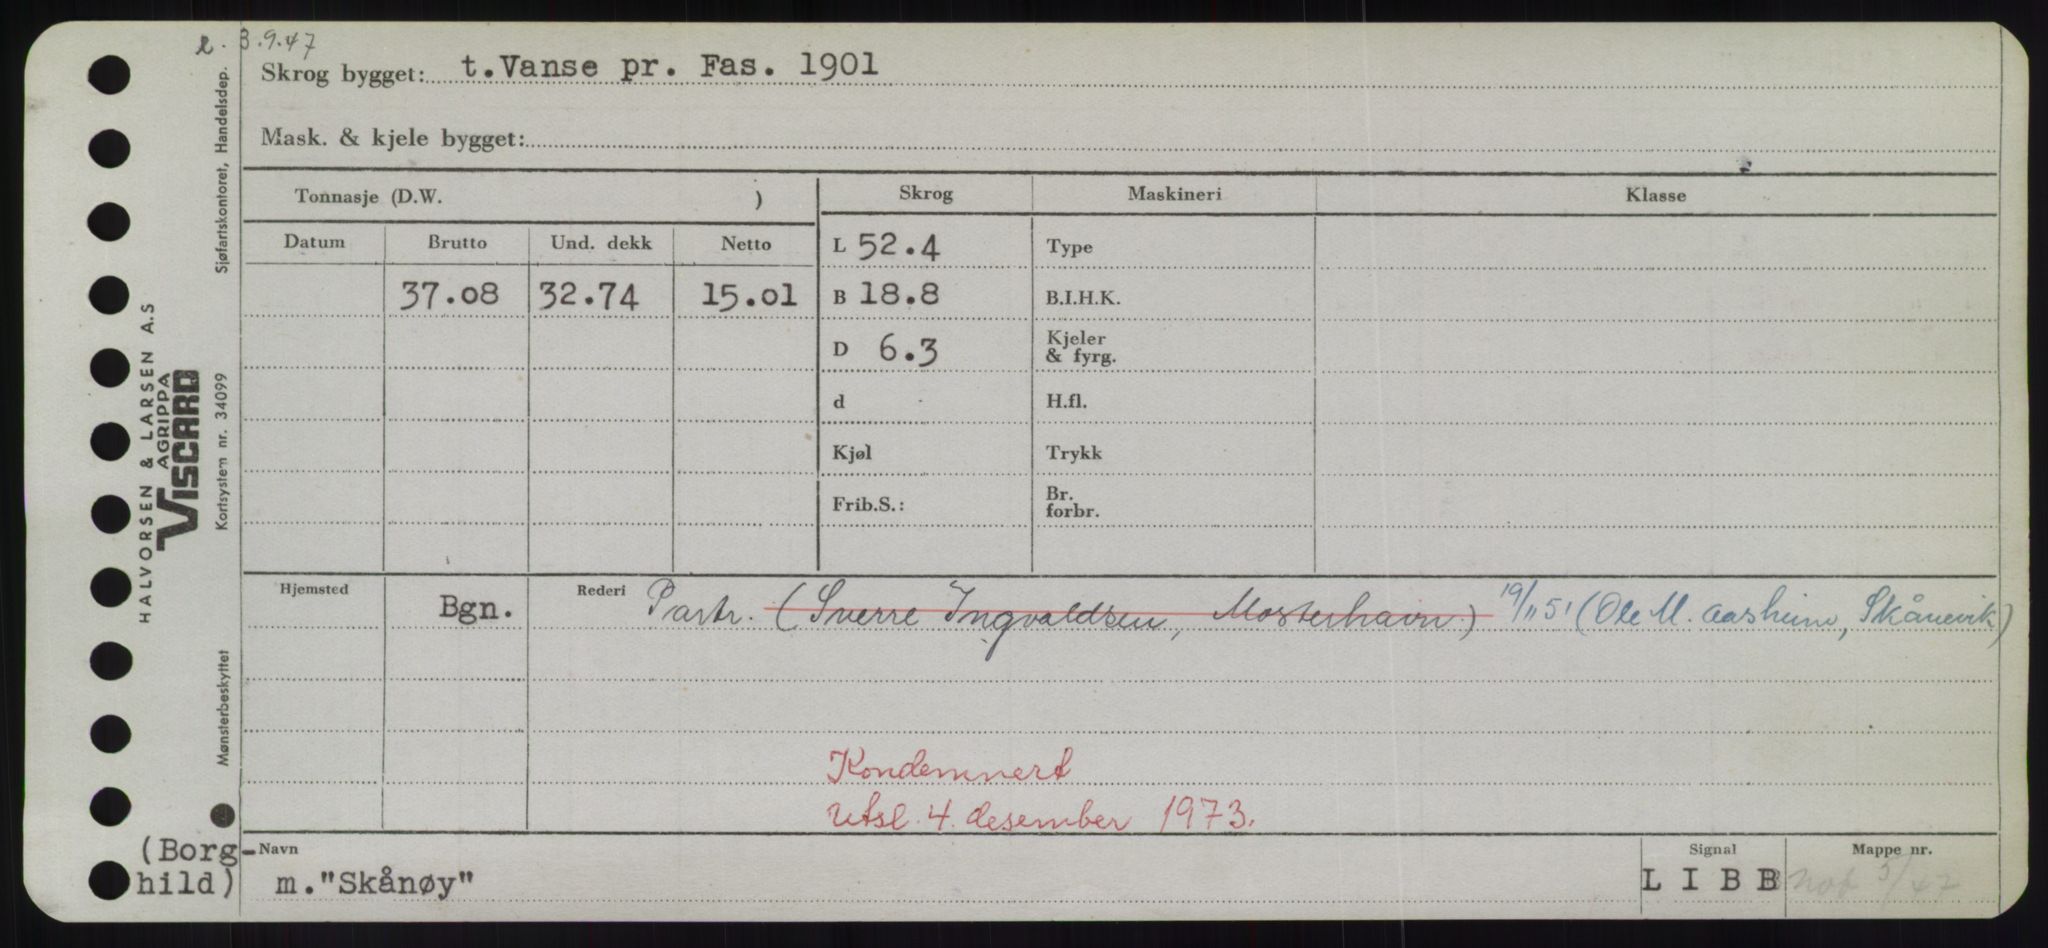 e. 3.9.47
Skrog bygget: t.Vanse pr. Fas. 1901
Mask. & kjele bygget:
Tonnasje (D.W. )
Skrog
Maskineri
Klasse
Datum
Brutto
Und. dekk
Netto
L 52.4
Type
37.08
32.74
15.01
B 18.8
B.I.H.K.
D 6.3
Kjeler
& fyrg.
d
H.fl.
Kjøl
Trykk
Frib.S.:
Br.
forbr.
Hjemsted
Bgn.
Rederi
Partr. (Sverre Ingvaldsen, Mosterhavn) 19/11 51 (Ole M. Aasheim, Skånevik)
Kondemnert
Utsl. 4. desember 1973.
(Borg-
hild)
Navn
m."Skånøy"
Signal
L I B B
Mappe nr.
5/47
HALVORSEN & LARSEN A.S
AGRIPPA
VISCARD
Mønsterbeskyttet
Kortsystem nr. 34099
Sjøfartskontoret, Handelsdep.